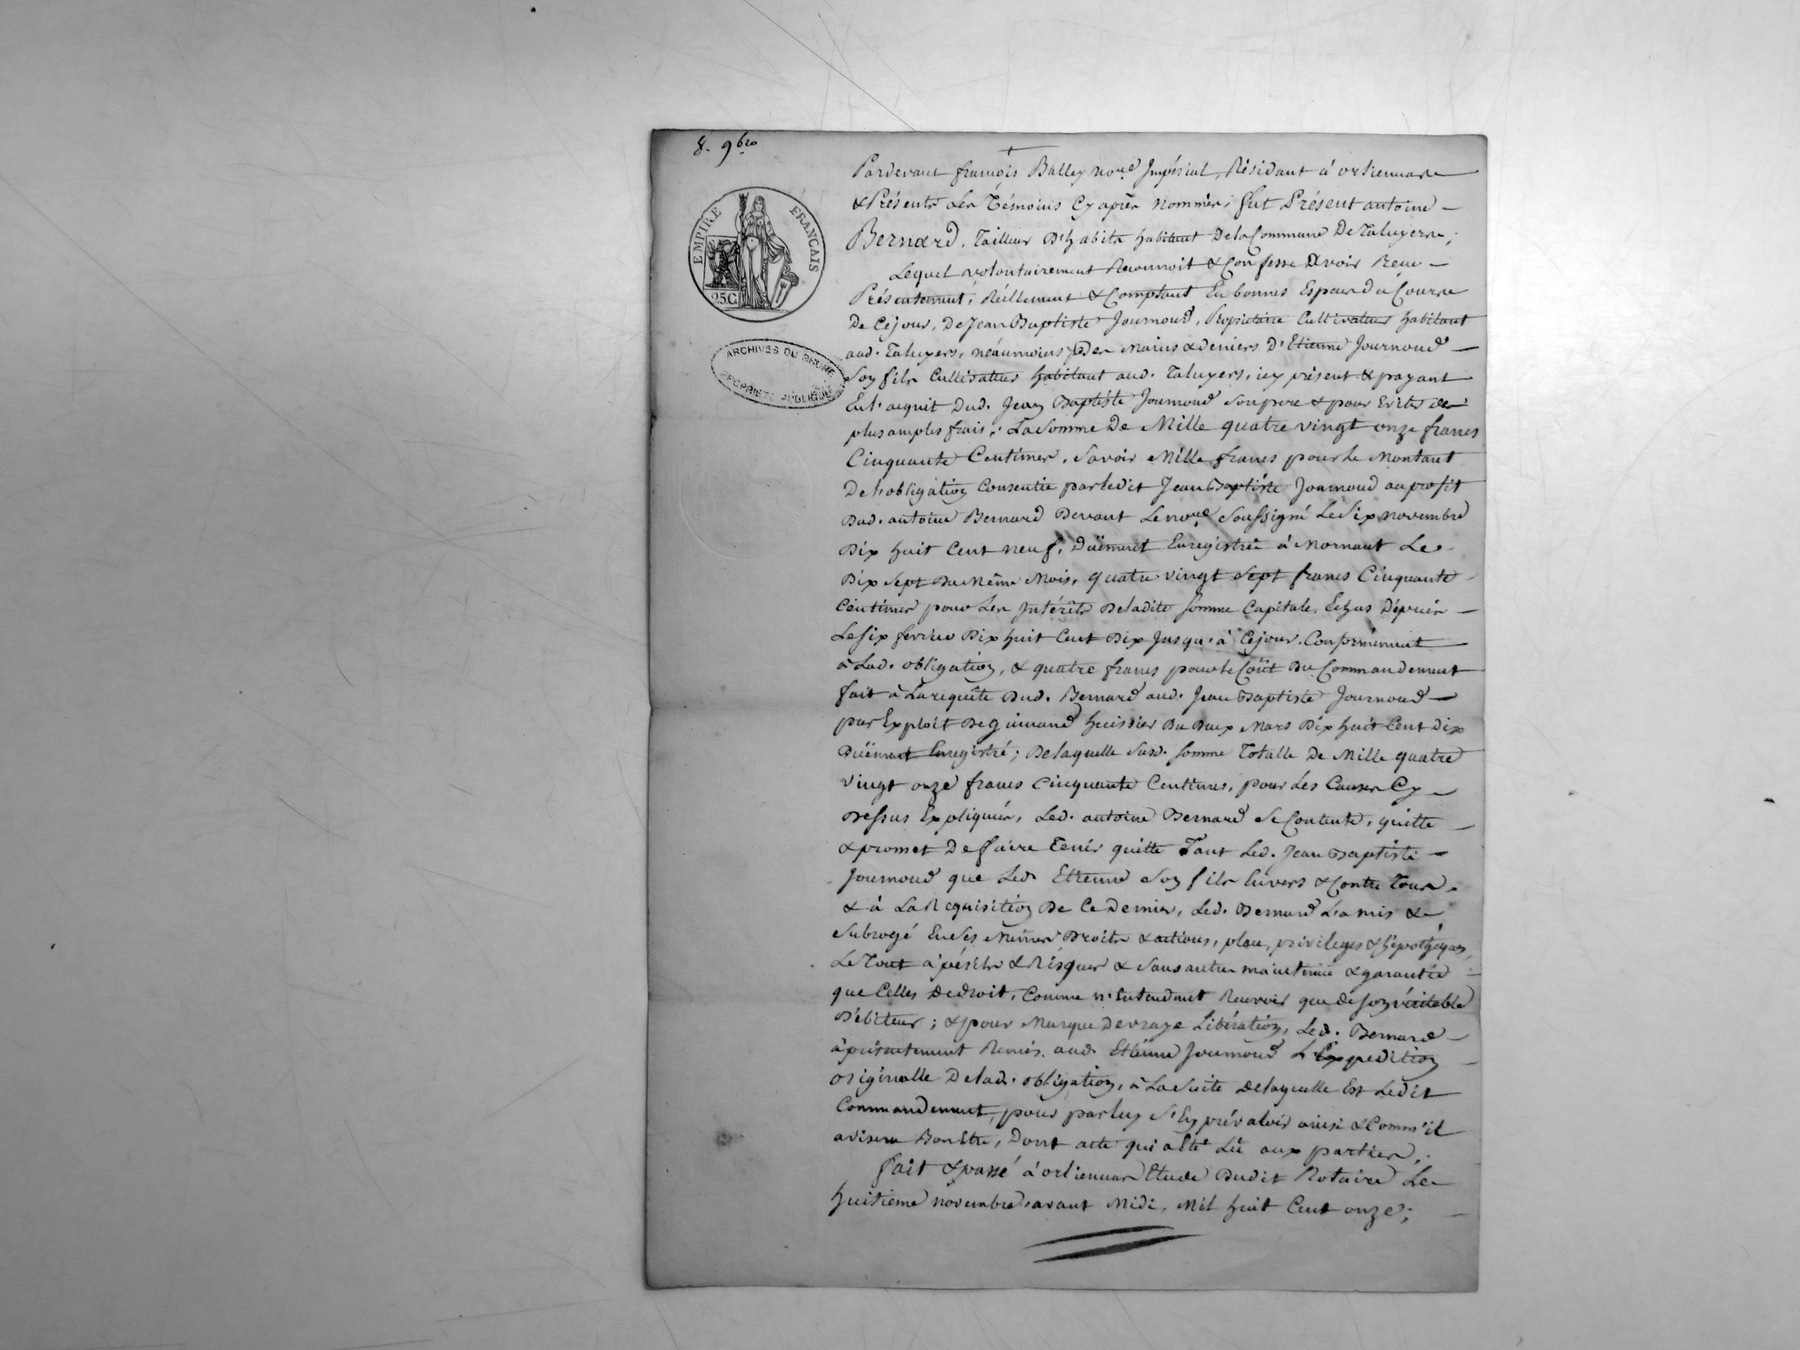 8. 9bre
EMPIRE FRANÇAIS
25C
ARCHIVES DU RHÔNE
PROPRIÉTÉ PUBLIQUE
Pardevant françois Balley nore Impérial, Résidant à orliennas
& Présents les Témoins Cy après nommés; fut Présent antoine
Bernard, Tailleur D'habits habitant De la Commune De Taluyers;
Lequel volontairement Reconnoit & Confesse Avoir Reçu
Présentement, Réellement & Comptant En bonnes Espèces du Cours
De Cejour, De Jean Baptiste Journoud, Propriétaire Cultivateur habitant
aud. Taluyers, néaumoins Des mains & deniers D'Etienne Journoud
Son fils Cultivateur habitant aud. Taluyers, icy présent & payant
En l'acquit Dud. Jean Baptiste Journoud Son pere & pour Eviter de
plus amples frais; La Somme De Mille quatre vingt onze francs
Cinquante Centimes, Savoir Mille francs pour le Montant
De l'obligation Consentie par ledit Jean Baptiste Journoud au profit
Dud. antoine Bernard Devant Le nore Soussigné Le Six novembre
Dix huit Cent neuf, Düement Enregistrée à Mornant Le
Dix Sept Du Même Mois, quatre vingt Sept francs Cinquante
Centimes pour Les Intérêts De ladite Somme Capitale, Echus Dépuis
Le Six fevrier Dix huit Cent Dix Jusqu'à Cejour Conformément
à Lad. obligation, & quatre francs pour le Coût Du Commandement
fait à La requête Dud. Bernard aud. Jean Baptiste Journoud
par Exploit De guimand huissier Du Deux Mars Dix huit Cent Dix
Duëment Enregistré; De laquelle Susd. Somme Totalle De Mille quatre
vingt onze francs Cinquante Centimes, pour Les Causes Cy
Dessus Expliquées, Led. antoine Bernard Se Contente, quitte
& promet De faire Tenir quitte Tant Led. Jean Baptiste
Journoud que Led. Etienne Son fils Envers & Contre Tous,
& à La Requisition De Ce Dernier, Led. Bernard L'a mis &
Subrogé En Ses Mêmes Droits & actions, place, privileges & hipothèques,
Le Tout à périls & Risques & Sans autre maintenüe & garantie
que Celles De droit, Comme n'Entendant Recevoir que de son véritable
Débiteur; & pour Marque De vraye Libération, Led. Bernard
à présentement Remis aud. Etienne Journoud L'Expedition
originalle De lad. obligation, à La Suite De laquelle Est Ledit
Commandement, pour par luy S'En prévaloir ainsi & Comm'il
avisera Bon Etre, Dont acte qui a Eté Lû aux parties;
fait & passé à orliennas Etude Dudit Notaire Le
huitieme novembre avant Midi, Mil huit Cent onze;